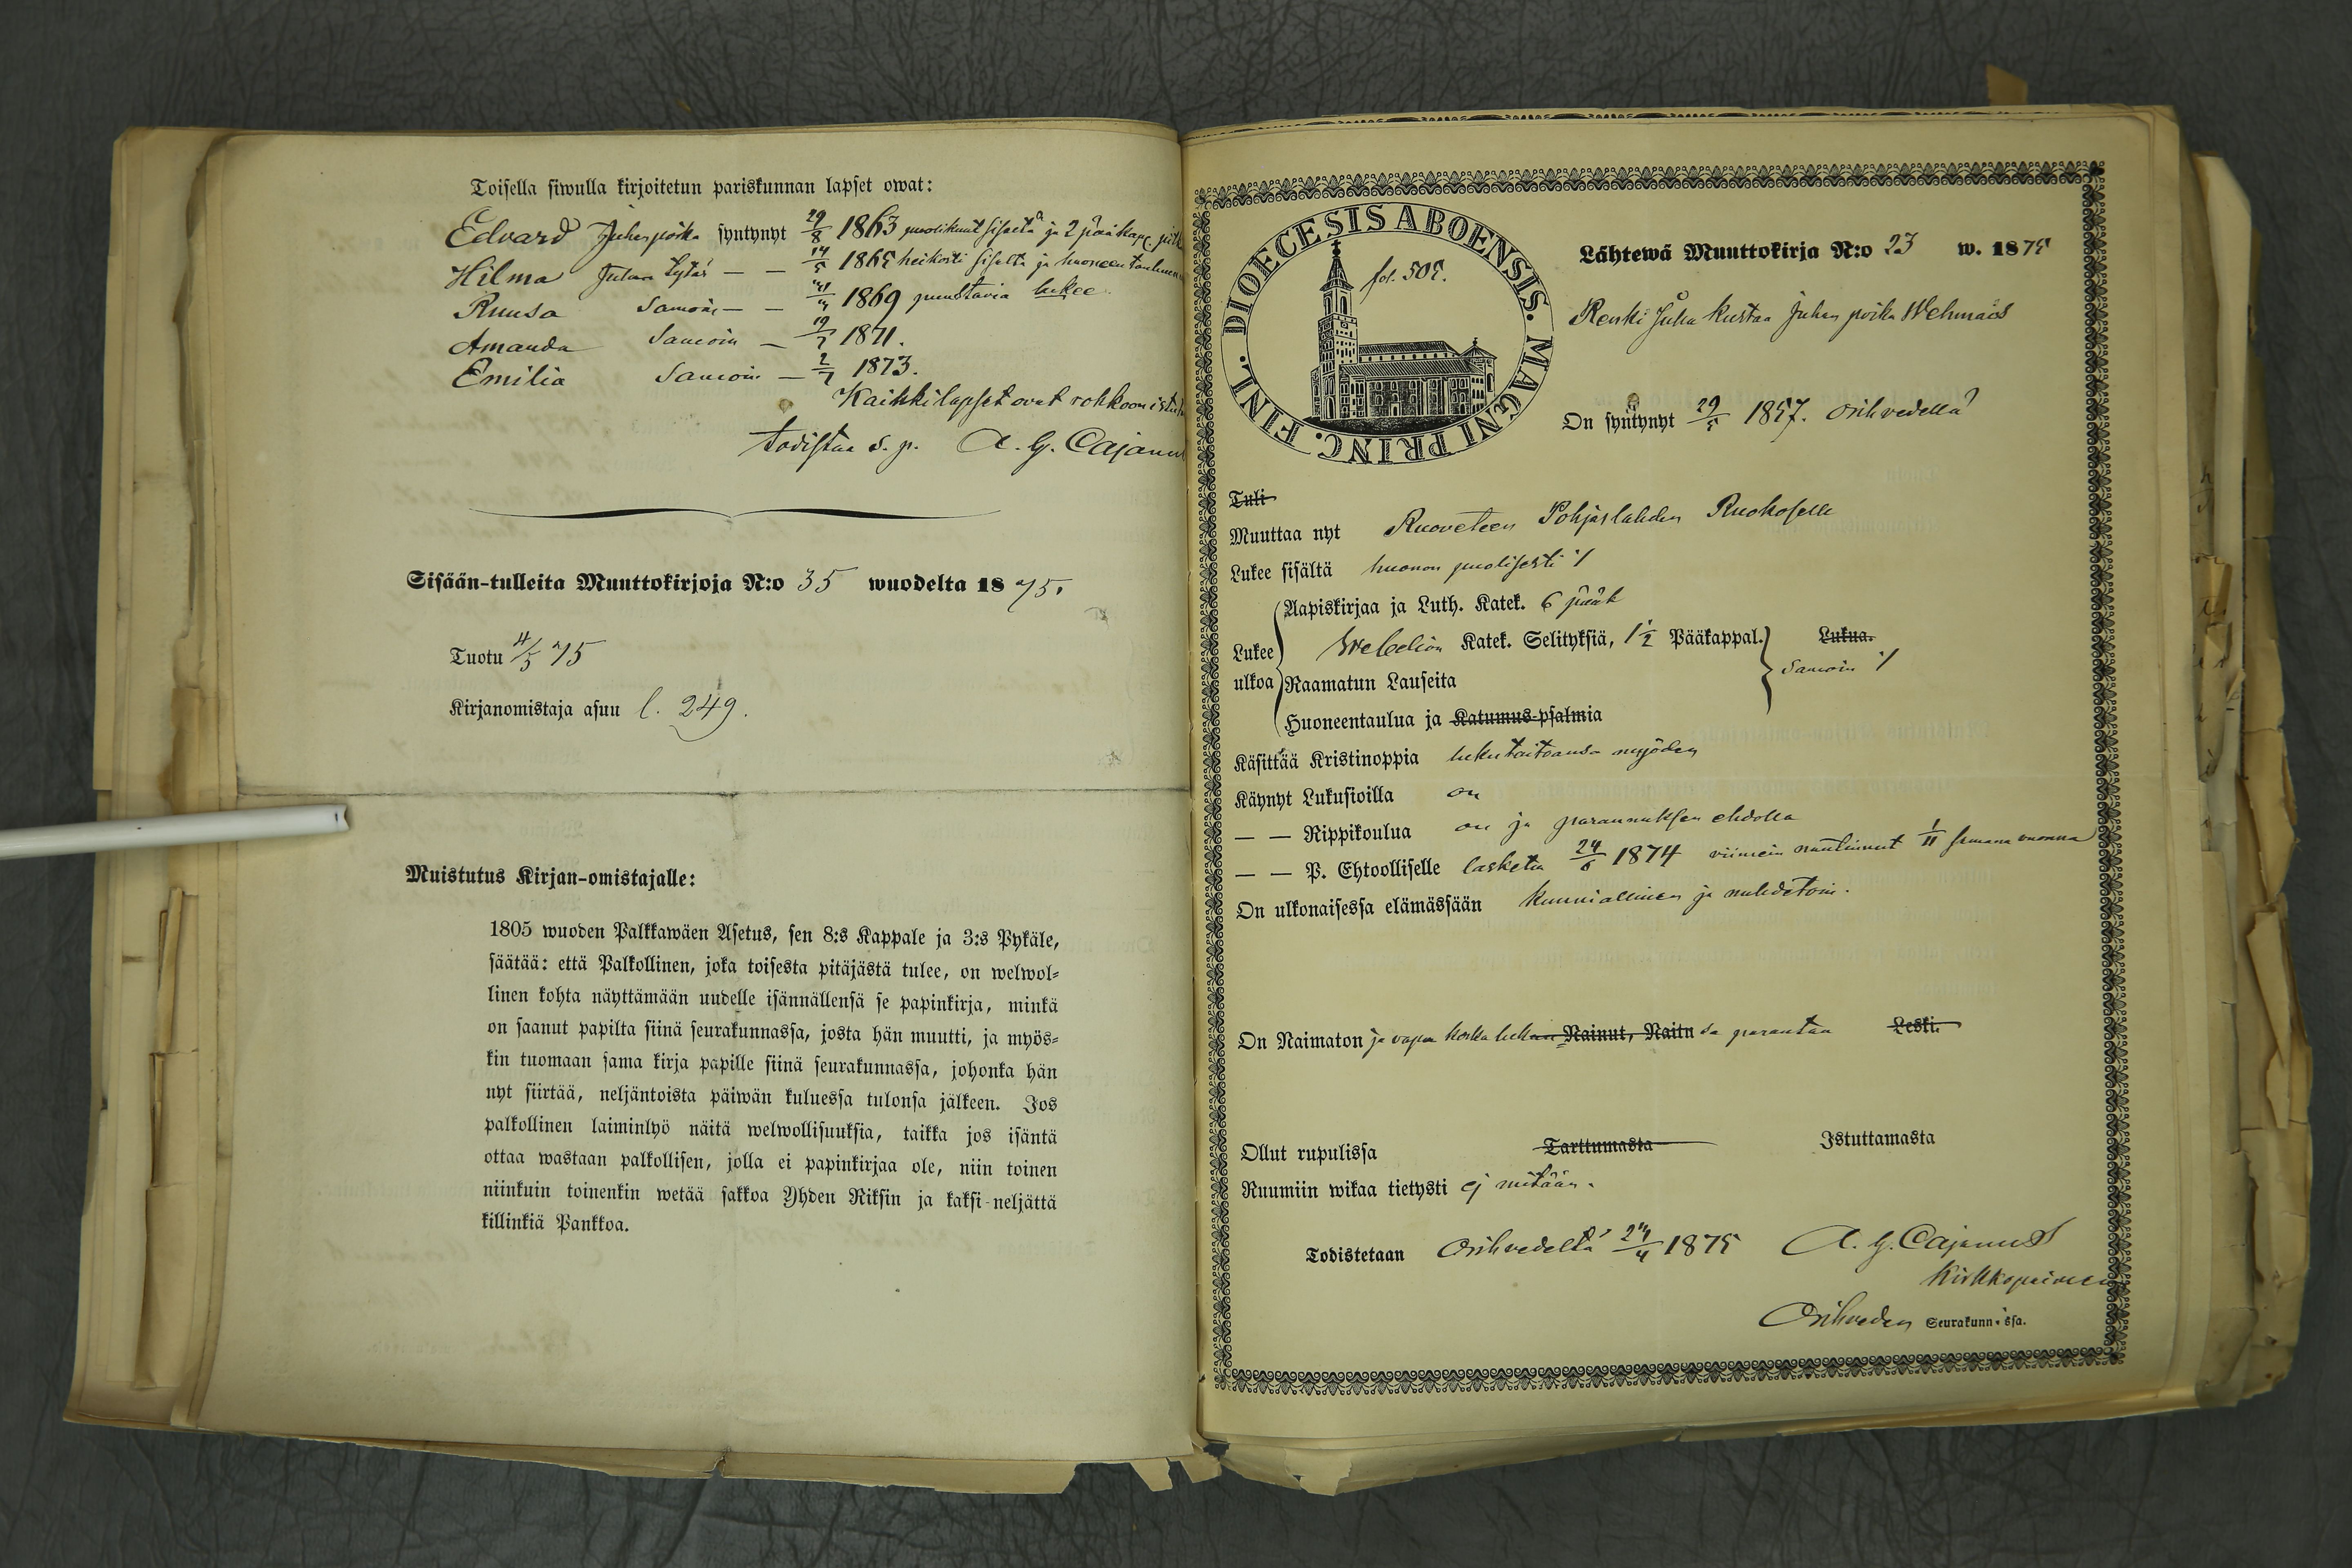 Toisella siwulla kirjoitetun pariskunnan lapset owat:
Edvard Juhanpoika syntynyt 29/8 1863 puolikuut sisältä ja 2 pääkapp.
Hilma Juhan tytär — — 14/5 1865 heikosti sisältä ja huoneen
Ruusa Samoin — — 1869 puustavia lukee
Amanda Samoin — 19/7 1871.
Emilia Samoin — 2/7 1873.
Kaikki lapset ovat rokkoon
todistaa s. p. A. G. Cajanus
Sisään-tulleita Muuttokirjoja N:o 35 wuodelta 1875.
Tuotu 4/5 75
Kirjanomistaja asuu l. 249.
Muistutus Kirjan-omistajalle:
1805 wuoden Palkkawäen Asetus, sen 8:s Kappale ja 3:s Pykäle,
säätää: että Palkollinen, joka toisesta pitäjästä tulee, on welwol-
linen kohta näyttämään uudelle isännällensä se papinkirja, minkä
on saanut papilta siinä seurakunnassa, josta hän muutti, ja myös-
kin tuomaan sama kirja papille siinä seurakunnassa, johonka hän
nyt siirtää, neljäntoista päiwän kuluessa tulonsa jälkeen. Jos
palkollinen laiminlyö näitä welwollisuuksia, taikka jos isäntä
ottaa wastaan palkollisen, jolla ei papinkirjaa ole, niin toinen
niinkuin toinenkin wetää sakkoa Yhden Riksin ja kaksi-neljättä
killinkiä Pankkoa.
DIOECESIS ABOENSIS. MAGNI PRINC. FINL.
fol. 507.
Lähtewä Muuttokirja N:o 23 w. 1875
Renki Juha Kustaa Juhan poika Wehmaös
On syntynyt 29/5 1857. Orihvedellä
Tuli
Muuttaa nyt Ruoveteen Pohjaslahden Ruokoselle
Lukee sisältä huonon puolisesti ·/.
Lukee ulkoa
Aapiskirjaa ja Luth. Katek. 6 pääk
Webelion Katek. Selityksiä, 1 1/2 Pääkappal.
Raamatun Lauseita
Huoneentaulua ja Katumus-psalmia
Lukua.
Samoin ·/.
Käsittää Kristinoppia lukutaitoansa myöden
Käynyt Lukusioilla on
— — Rippikoulua on ja parannuksen ehdolla
— — P. Ehtoolliselle laskettu 24/6 1874 viimein nauttinnut 1/11 samana vuonna
On ulkonaisessa elämässään kunniallinen ja nuhdetoin.
On Naimaton ja vapaa koska Nainut, Naitu parantaa Leski.
Ollut rupulissa Tarttumasta Istuttamasta
Ruumiin wikaa tietysti ej mitään.
Todistetaan Orihvedeltä 24/4 1875 A. G. Cajanus
Kirkkopaimen
Orihveden Seurakunnassa.